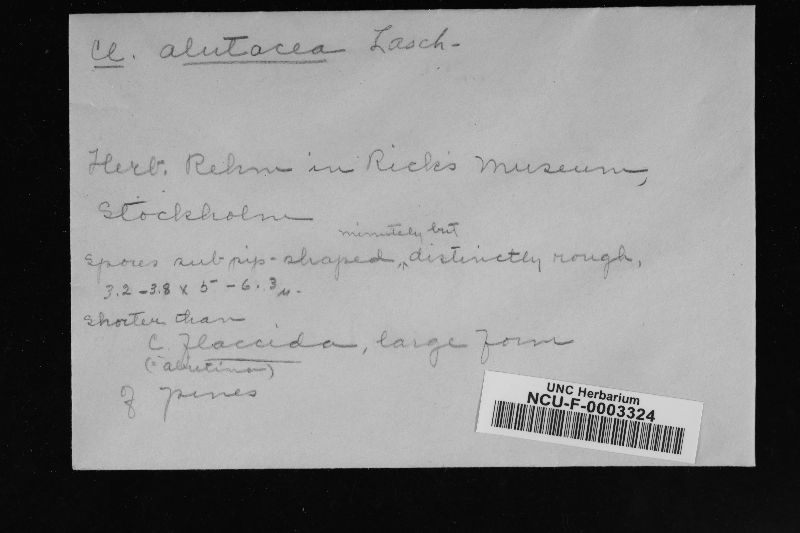 Cl. alutacea Lasch-
Herb. Rehm in Rick's Museum,
Stockholm
minutely but
Spores sub pip-shaped, ^ distinctly rough,
3.2-3.8 x 5-6.3 µ.
Shorter than
C. flaccida, large form
of pines
UNC Herbarium
NCU-F-0003324